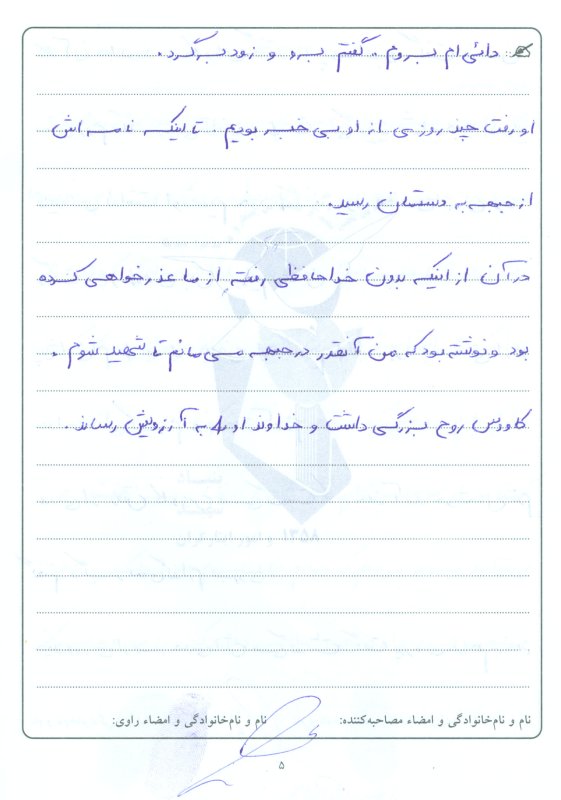 دائی ام بروم . گفتم برو و زود برگرد .
او رفت چند روزی از او بی خبر بودیم . تا اینکه نامه اش
از جبهه به دستمان رسید .
در آن از اینکه بدون خداحافظی رفته از ما عذرخواهی کرده
بود و نوشته بود که من آنقدر در جبهه می مانم تا شهید شوم .
کاووس روح بزرگی داشت و خداوند او را به آرزویش رساند .
۱۳۵۸
نام و نام‌خانوادگی و امضاء مصاحبه‌کننده: نام و نام‌خانوادگی و امضاء راوی:
۵